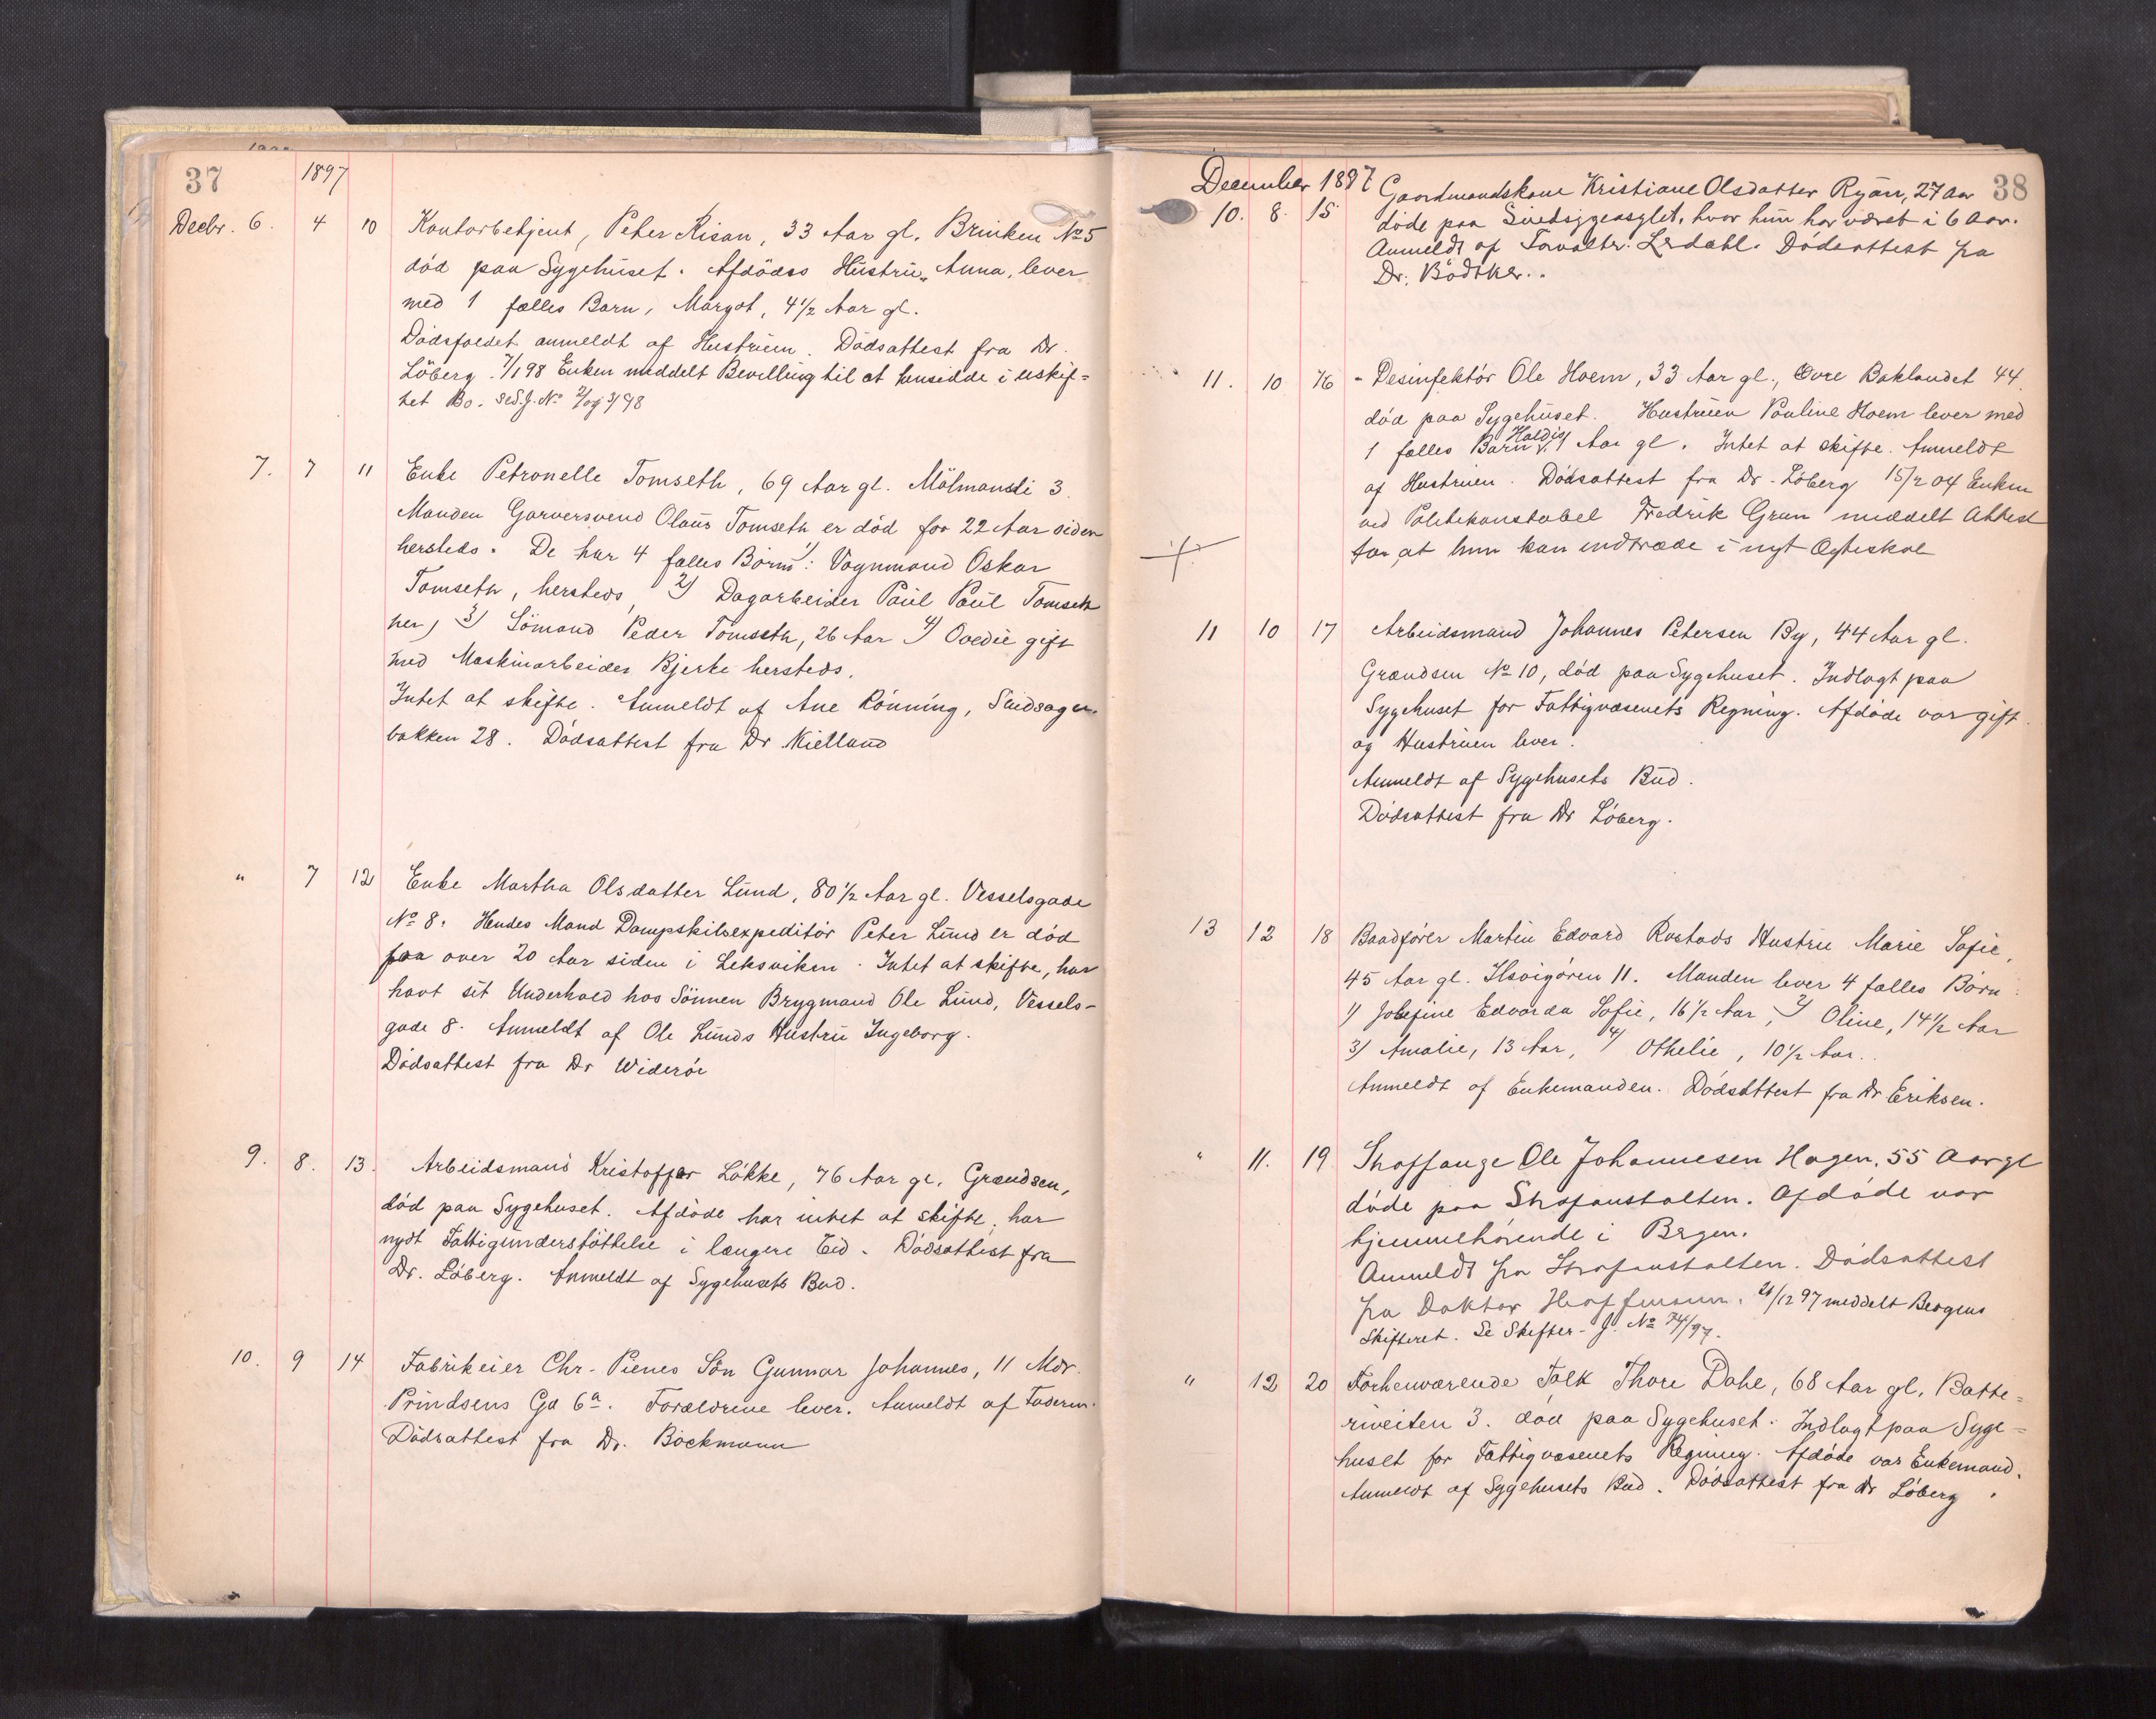 37
1897
Decbr. 6. 4 10 Kontorbetjent, Peter Risan, 33 Aar gl. Brinken No 5
död paa Sygehuset. Afdödes Hustru, Anna, lever
med 1 fælles Barn, Margot, 4½ Aar gl.
Dödsfaldet anmeldt af Hustruen. Dödsattest fra Dr.
Löberg. 7/1 98 Enken meddelt Bevilling til at hensidde i uskif=
tet Bo. Se S.J. No 2/og 3/98
7. 7 11 Enke Petronelle Tomseth, 69 Aar gl. Mölmansli 3.
Manden Garversvend Olaus Tomseth er död for 22 Aar siden
hersteds. De har 4 fælles Börn: 1) Vognmand Oskar
Tomseth, hersteds, 2) Dagarbeider Paul Paul Tomseth
her, 3) Sömand Peder Tomseth, 26 Aar 4) Ovedie gift
med Maskinarbeider Bjerke hersteds.
Intet at skifte. Anmeldt af Ane Rönning, Steidsager
bakken 28. Dödsattest fra Dr Kielland
" 7 12 Enke Martha Olsdatter Lund, 80½ Aar gl. Vesselsgade
No 8. Hendes Mand Dampskibsexpeditör Peter Lund er död
for over 20 Aar siden i Leksviken. Intet at skifte, har
havt sit Underhold hos Sönnen Brygmand Ole Lund, Vessels-
gade 8. Anmeldt af Ole Lunds Hustru Ingeborg.
Dödsattest fra Dr Wideröe
9. 8. 13. Arbeidsmand Kristoffer Lökke, 76 Aar gl. Grændsen,
död paa Sygehuset. Afdöde har intet at skifte, har
nydt Fattigunderstöttelse i længere Tid. Dödsattest fra
Dr. Löberg. Anmeldt af Sygehusets Bud.
10. 9 14 Fabrikeier Chr. Pienes Sön Gunnar Johannes, 11 Mdr.
Prindsens Gd 6a. Forældrene lever. Anmeldt af Faderen.
Dödsattest fra Dr. Böckmann
38
December 1897
10. 8. 15 Gaardmandskone Kristiane Olsdatter Ryän, 27 Aar
döde paa Sindsygeasylet, hvor hun har været i 6 Aar.
Anmeldt af Forvalter Lerdahl. Dödsattest fra
Dr. Bödtker.
11. 10 16 - Desinfektör Ole Hoem, 33 Aar gl., Övre Baklandet 44.
död paa Sygehuset. Hustruen Pauline Hoem lever med
1 fælles Barn Haldis 1 Aar gl. Intet at skifte. Anmeldt
af Hustruen. Dödsattest fra Dr. Löberg 15/2 04 Enken
ved Politikonstabel Fredrik Gran meddelt Attest
for at hun kan indtræde i nyt Ægteskab
11 10 17 Arbeidsmand Johannes Petersen By, 44 Aar gl.
Grændsen No 10, död paa Sygehuset. Indlagt paa
Sygehuset for Fattigvæsenets Regning. Afdöde var gift
og Hustruen lever.
Anmeldt af Sygehusets Bud.
Dödsattest fra Dr Löberg.
13 12 18 Baadförer Martin Edvard Rostads Hustru Marie Sofie,
45 Aar gl. Ilsvigören 11. Manden lever 4 fælles Börn:
1) Josefine Edvarda Sofie, 16½ Aar, 2) Oline, 14½ Aar
3) Amalie, 13 Aar, 4) Othelie, 10½ Aar.
Anmeldt af Enkemanden. Dödsattest fra Dr. Eriksen.
" 11. 19 Straffange Ole Johannesen Hagen, 55 Aar gl
döde paa Strafanstalten. Afdöde var
hjemmehörende i Bergen.
Anmeldt fra Strafanstalten. Dödsattest
fra Doktor Hoffmann. 21/12 97 meddelt Bergens
Skifteret. Se Skifter-J. No 74/97.
" 12 20 Forhenværende Tolk Thore Dahl, 68 Aar gl. Batte=
riveiten 3. död paa Sygehuset. Indlagt paa Syge=
huset for Fattigvæsenets Regning. Afdöde var Enkemand.
Anmeldt af Sygehusets Bud. Dödsattest fra Dr Löberg.